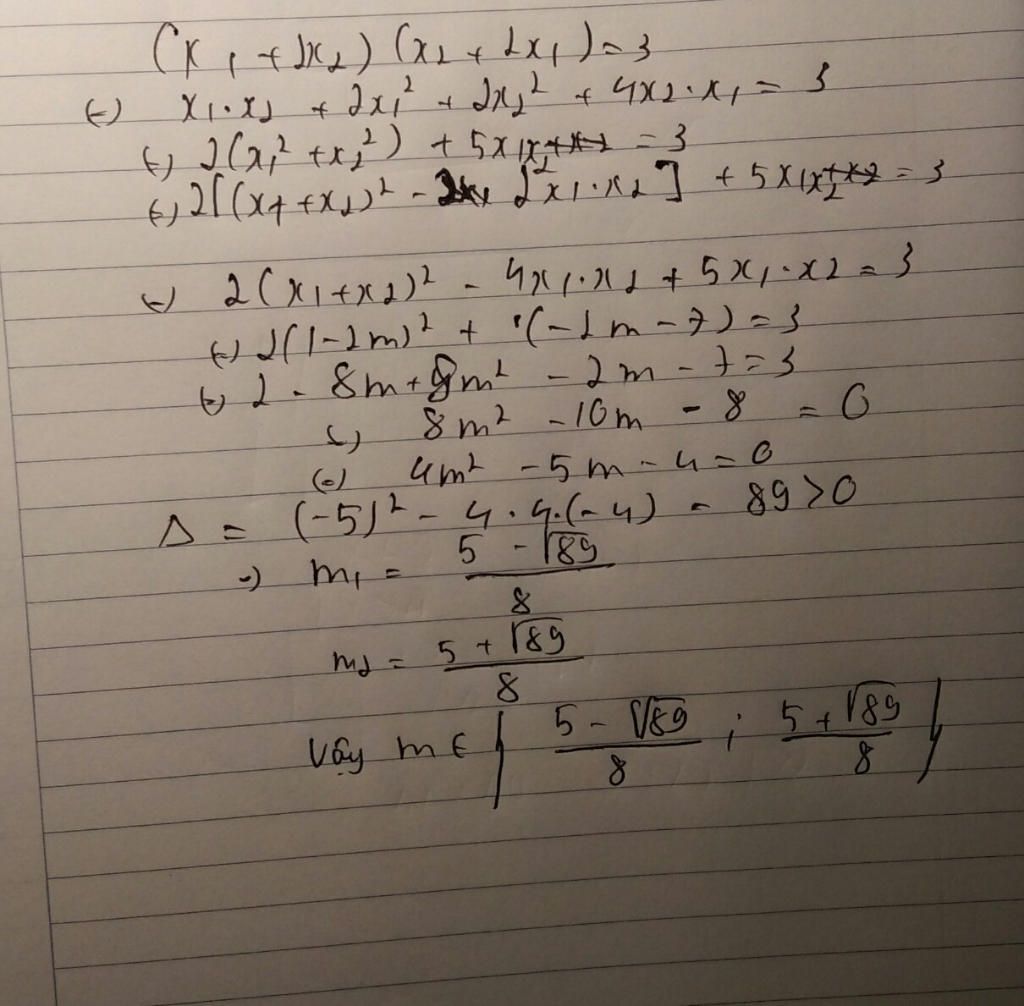 (x₁ + 2x₂) (x₂ + 2x₁) = 3
(=) x₁.x₂ + 2x₁² + 2x₂² + 4x₂.x₁ = 3
(=) 2(x₁² + x₂²) + 5x₁x₂ = 3
(=) 2[(x₁ + x₂)² - 2x₁.x₂] + 5x₁x₂ = 3
(=) 2(x₁ + x₂)² - 4x₁.x₂ + 5x₁.x₂ = 3
(=) 2(1 - 2m)² + (-2m - 7) = 3
(=) 2 - 8m + 8m² - 2m - 7 = 3
(=) 8m² - 10m - 8 = 0
(=) 4m² - 5m - 4 = 0
Δ = (-5)² - 4.4.(-4) = 89 > 0
=) m₁ = (5 - √89)/8
m₂ = (5 + √89)/8
Vậy m ∈ { (5 - √89)/8 ; (5 + √89)/8 }